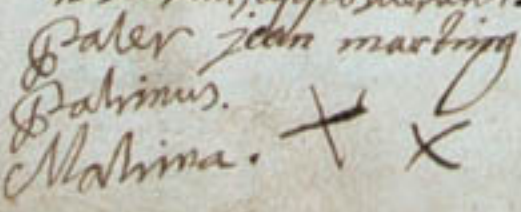 Pater jean marting
Patrinus.
Matrina. X X